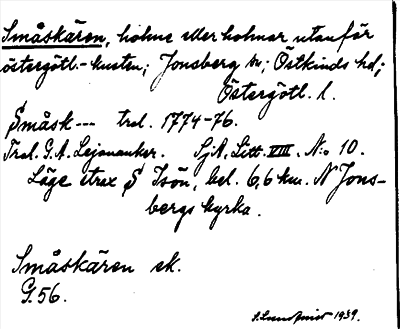 Småskären, holme eller holmar utanför
östergötl.-kusten; Jonsberg sn; Östkinds hd;
Östergötl. l.
Småsk--- trol. 1774-76.
Trol. G.A. Lejonanker. SjA. Litt. VIII. N:o 10.
Läge strax S Isön, bel. 6,6 km. N Jons-
bergs kyrka.
Småskären ek.
G.56.
1939.